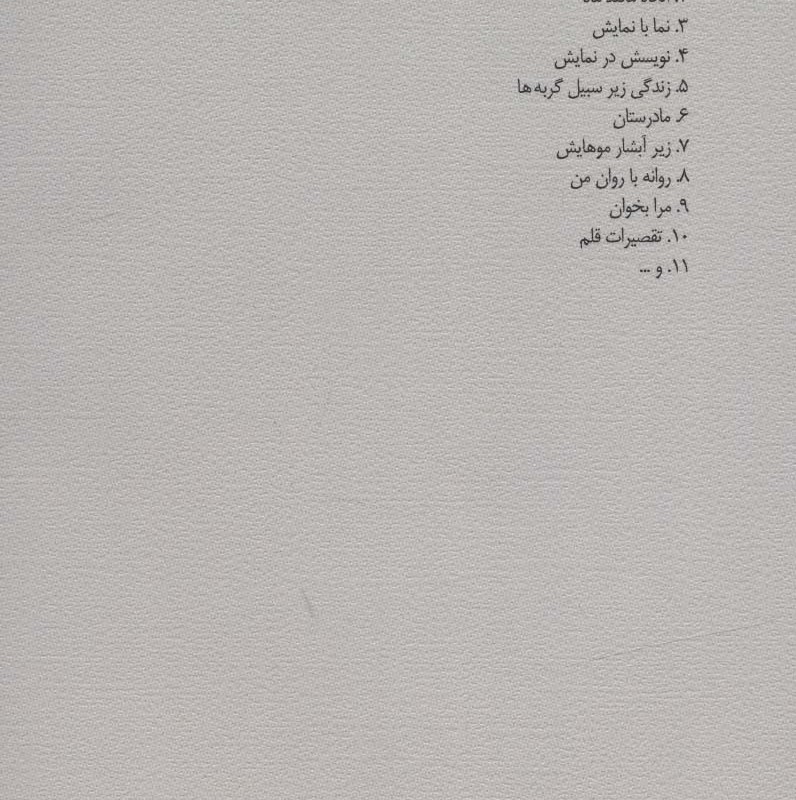 ۳. نما با نمایش
۴. نویسش در نمایش
۵. زندگی زیر سبیل گربه‌ها
۶. مادرستان
۷. زیر آبشار موهایش
۸. روانه با روان من
۹. مرا بخوان
۱۰. تقصیرات قلم
۱۱. و ...